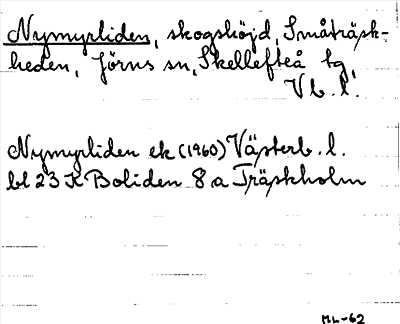 Nymyrliden, skogshöjd, Småträsk-
heden, Jörns sn, Skellefteå tg,
Vb. l.
Nymyrliden ek (1960) Västerb. l.
bl 23 K Boliden 8 a Träskholm
ML-62